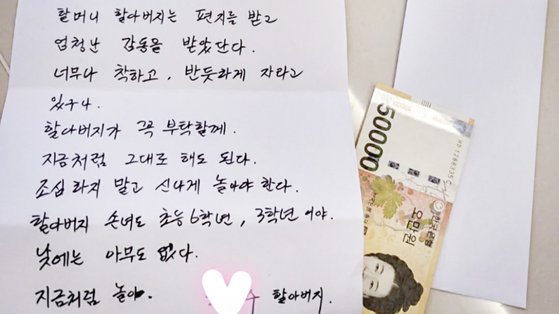 할머니 할아버지는 편지를 받고
엄청난 감동을 받았단다.
너무나 착하고, 반듯하게 자라고
있구나.
할아버지가 꼭 부탁할께.
지금처럼 그대로 해도 된다.
조심 하지 말고 신나게 놀아야 한다.
할아버지 손녀도 초등 6학년, 3학년 이야.
낮에는 아무도 없다.
지금처럼 놀아. 수 할아버지.
50000
한국은행
오만원